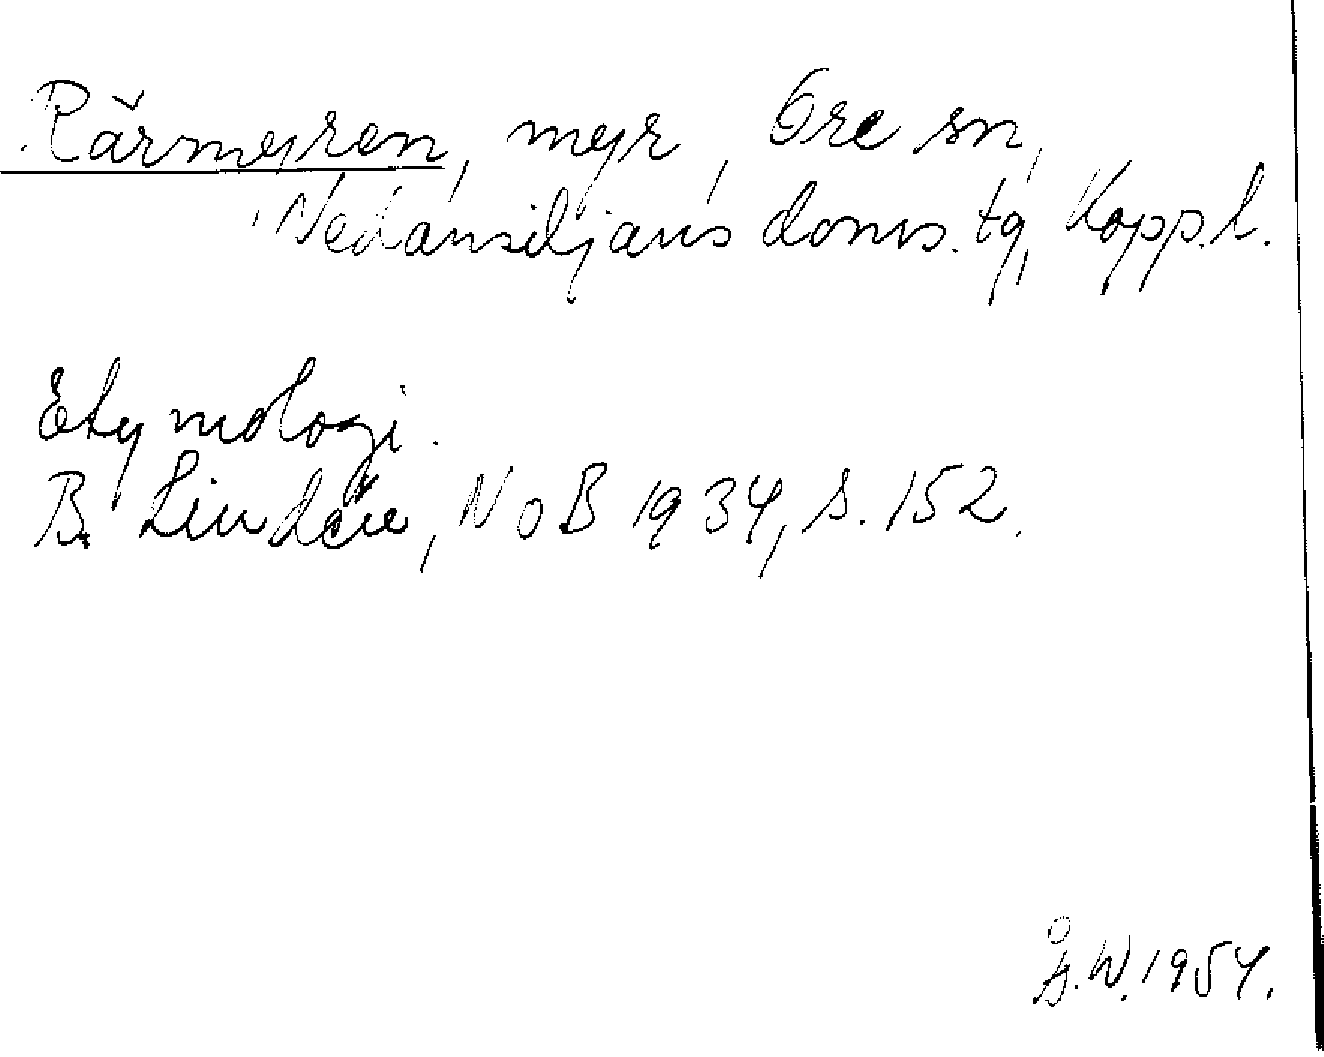 Rärmyren, myr, Ore sn,
Nedansiljans doms. tg, Kopp.l.
Etymologi.
B. Lindén, NoB 1934, s. 152.
Å.W. 1954.